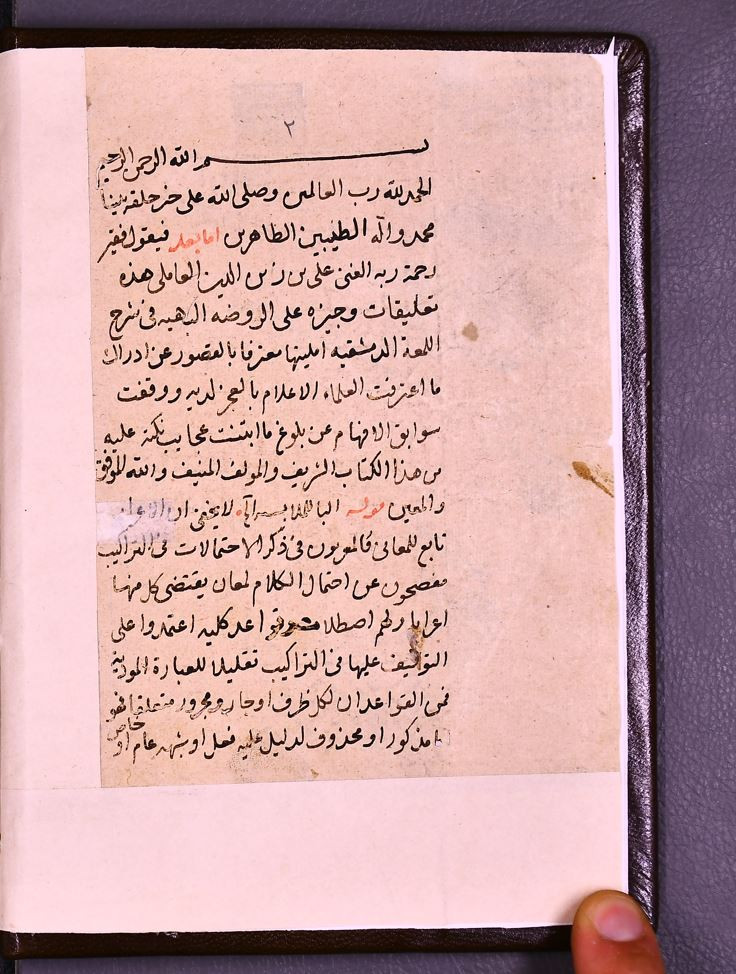 ٢
بسم الله الرحمن الرحيم
الحمد لله رب العالمين وصلى الله على خير خلقه نبينا
محمد وآله الطيبين الطاهرين اما بعد فيقول فقير
رحمة ربه الغنى على بن زين الدين العاملى هذه
تعليقات وجيزه على الروضه البهيه فى شرح
اللمعة الدمشقيه امليتها معترفا بالقصور عن ادراك
ما اعترفت العلماء الاعلام بالعجز لديه ووقفت
سوابق الافهام عن بلوغ ما ابتنت عجايب نكته عليه
من هذا الكتاب الشريف والمولف المنيف والله الموفق
والمعين قوله الباء للملابسه الخ لا يخفى ان الاعراب
تابع للمعانى فالمعربون فى ذكر الاحتمالات فى التراكيب
مفصحون عن احتمال الكلام لمعان يقتضى كل منها
اعرابا ولهم اصطلاحات وقواعد كليه اعتمدوا على
التوقيف عليها فى التراكيب تقليلا للعبارة المودية
فمن القواعد ان لكل ظرف او جار ومجرور متعلقا فهو
اما مذكور او محذوف لدليل عليه فعل او شبهه عام او
خاص